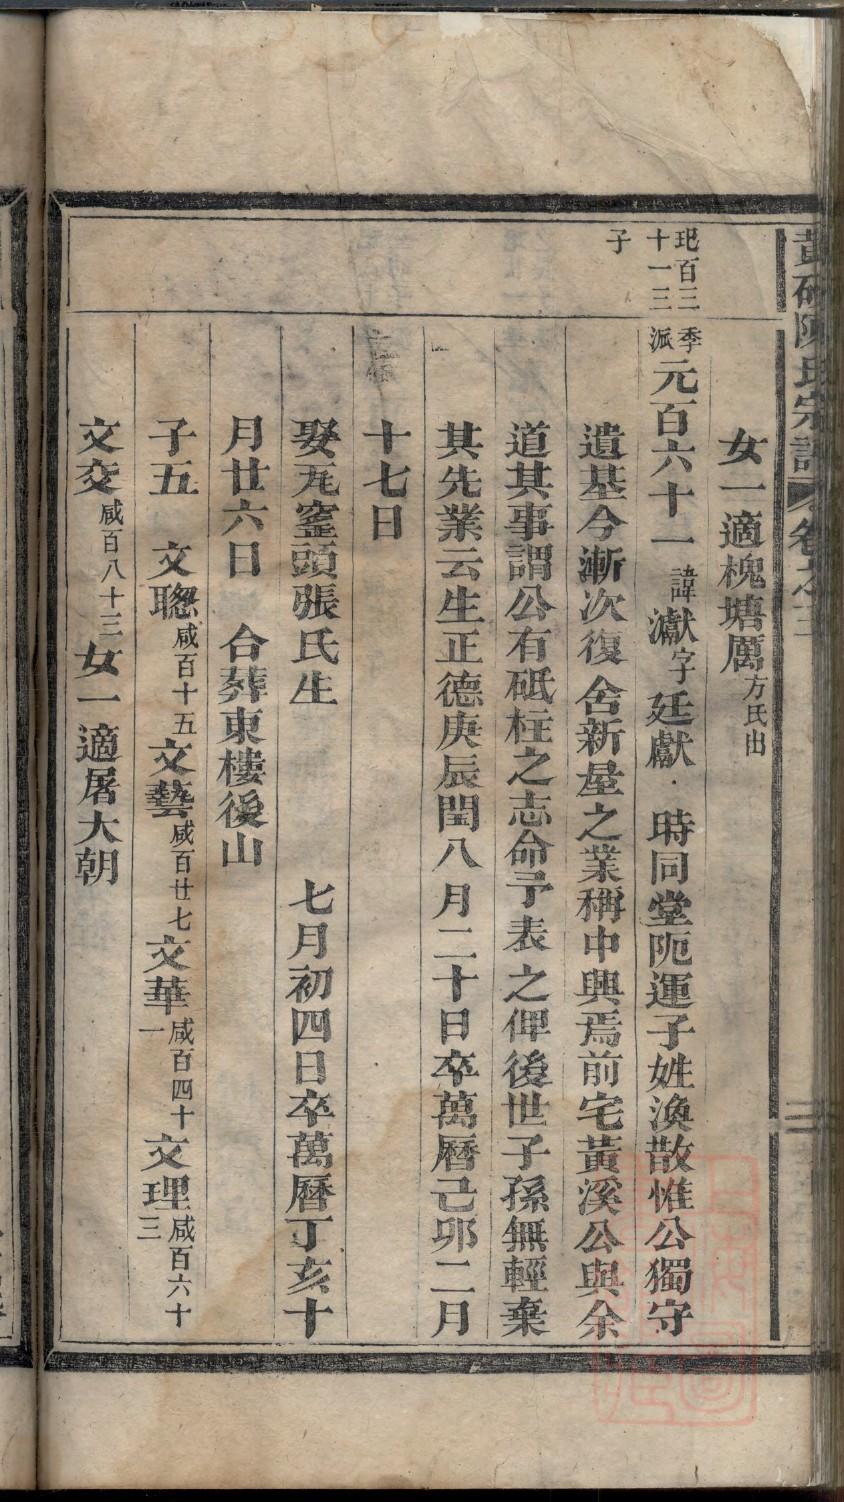 陳氏宗譜 卷之三
女一適槐塘厲方氏出
玘百三十一三子
季派元百六十一諱瀛獻字廷獻時同堂阨運子姓渙散惟公獨守
遺基今漸次復舍新量之業稱中興焉前宅黃溪公與余
道其事謂公有砥柱之志命予表之俾後世子孫無輕棄
其先業云生正德庚辰閏八月二十日卒萬曆己卯二月
十七日
娶瓦窰頭張氏生 七月初四日卒萬曆丁亥十
月廿六日 合葬東樓後山
子五 文聰咸百十五文藝咸百廿七文華咸百四十一文理咸百六十三
文交咸百八十三女一適屠大朝